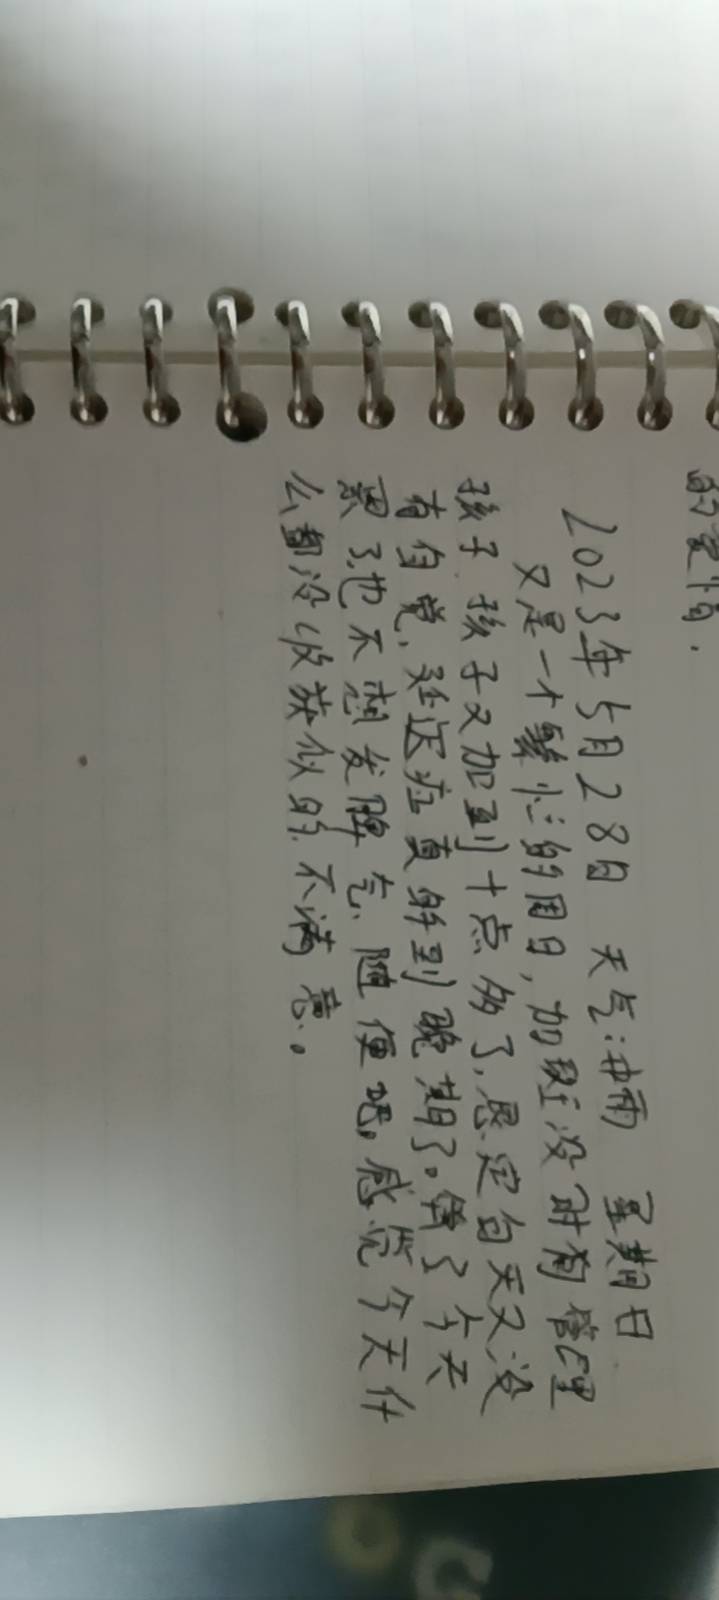 的爱情.
2023年5月28日 天气:中雨 星期日
又是一个繁忙的周日,加班没时间管理
孩子.孩子又加到十点多了,恳定白天又没
有自觉,延迟症真的到晚期了。算了今天
累了,也不想发脾气.随便吧。感觉今天什
么都没收获似的.不满意.。